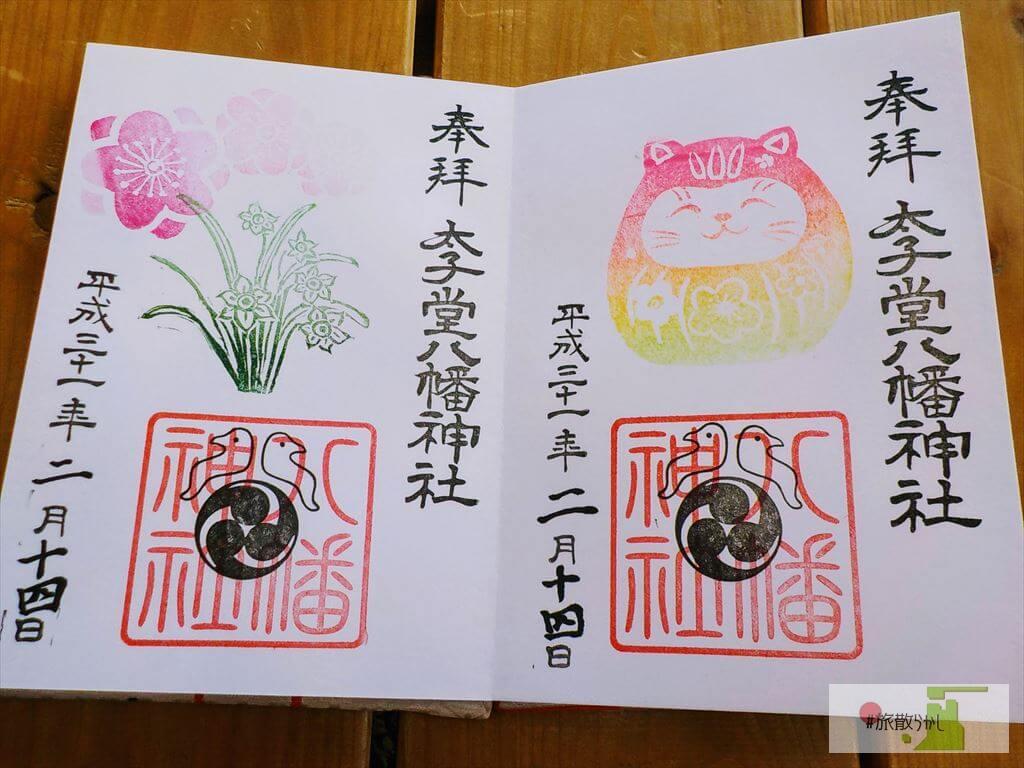 奉拝
太子堂八幡神社
平成三十一年二月十四日
八幡
神社
奉拝
太子堂八幡神社
平成三十一年二月十四日
八幡
神社
#旅散らかし